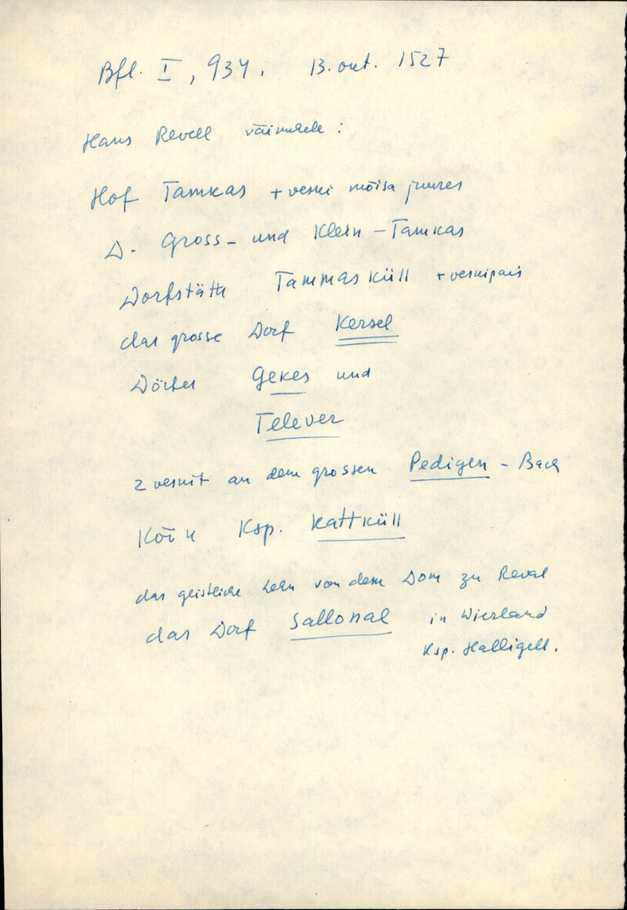 Bfl. I, 934. 13. okt. 1527
Hans Revell väimehele:
Hof Tamkas + veski mõisa juures
D. Gross- und Klein-Tamkas
Dorfstätte Tammasküll + veskipais
das grosse Dorf Kersel
Dörfer Gekes und
Telever
2 veskit an dem grossen Pedigen-Bach
Kõik Ksp. Kattküll
das geistliche Lehn von dem Dom zu Reval
das Dorf Sallonal in Wierland
Ksp. Halligell.